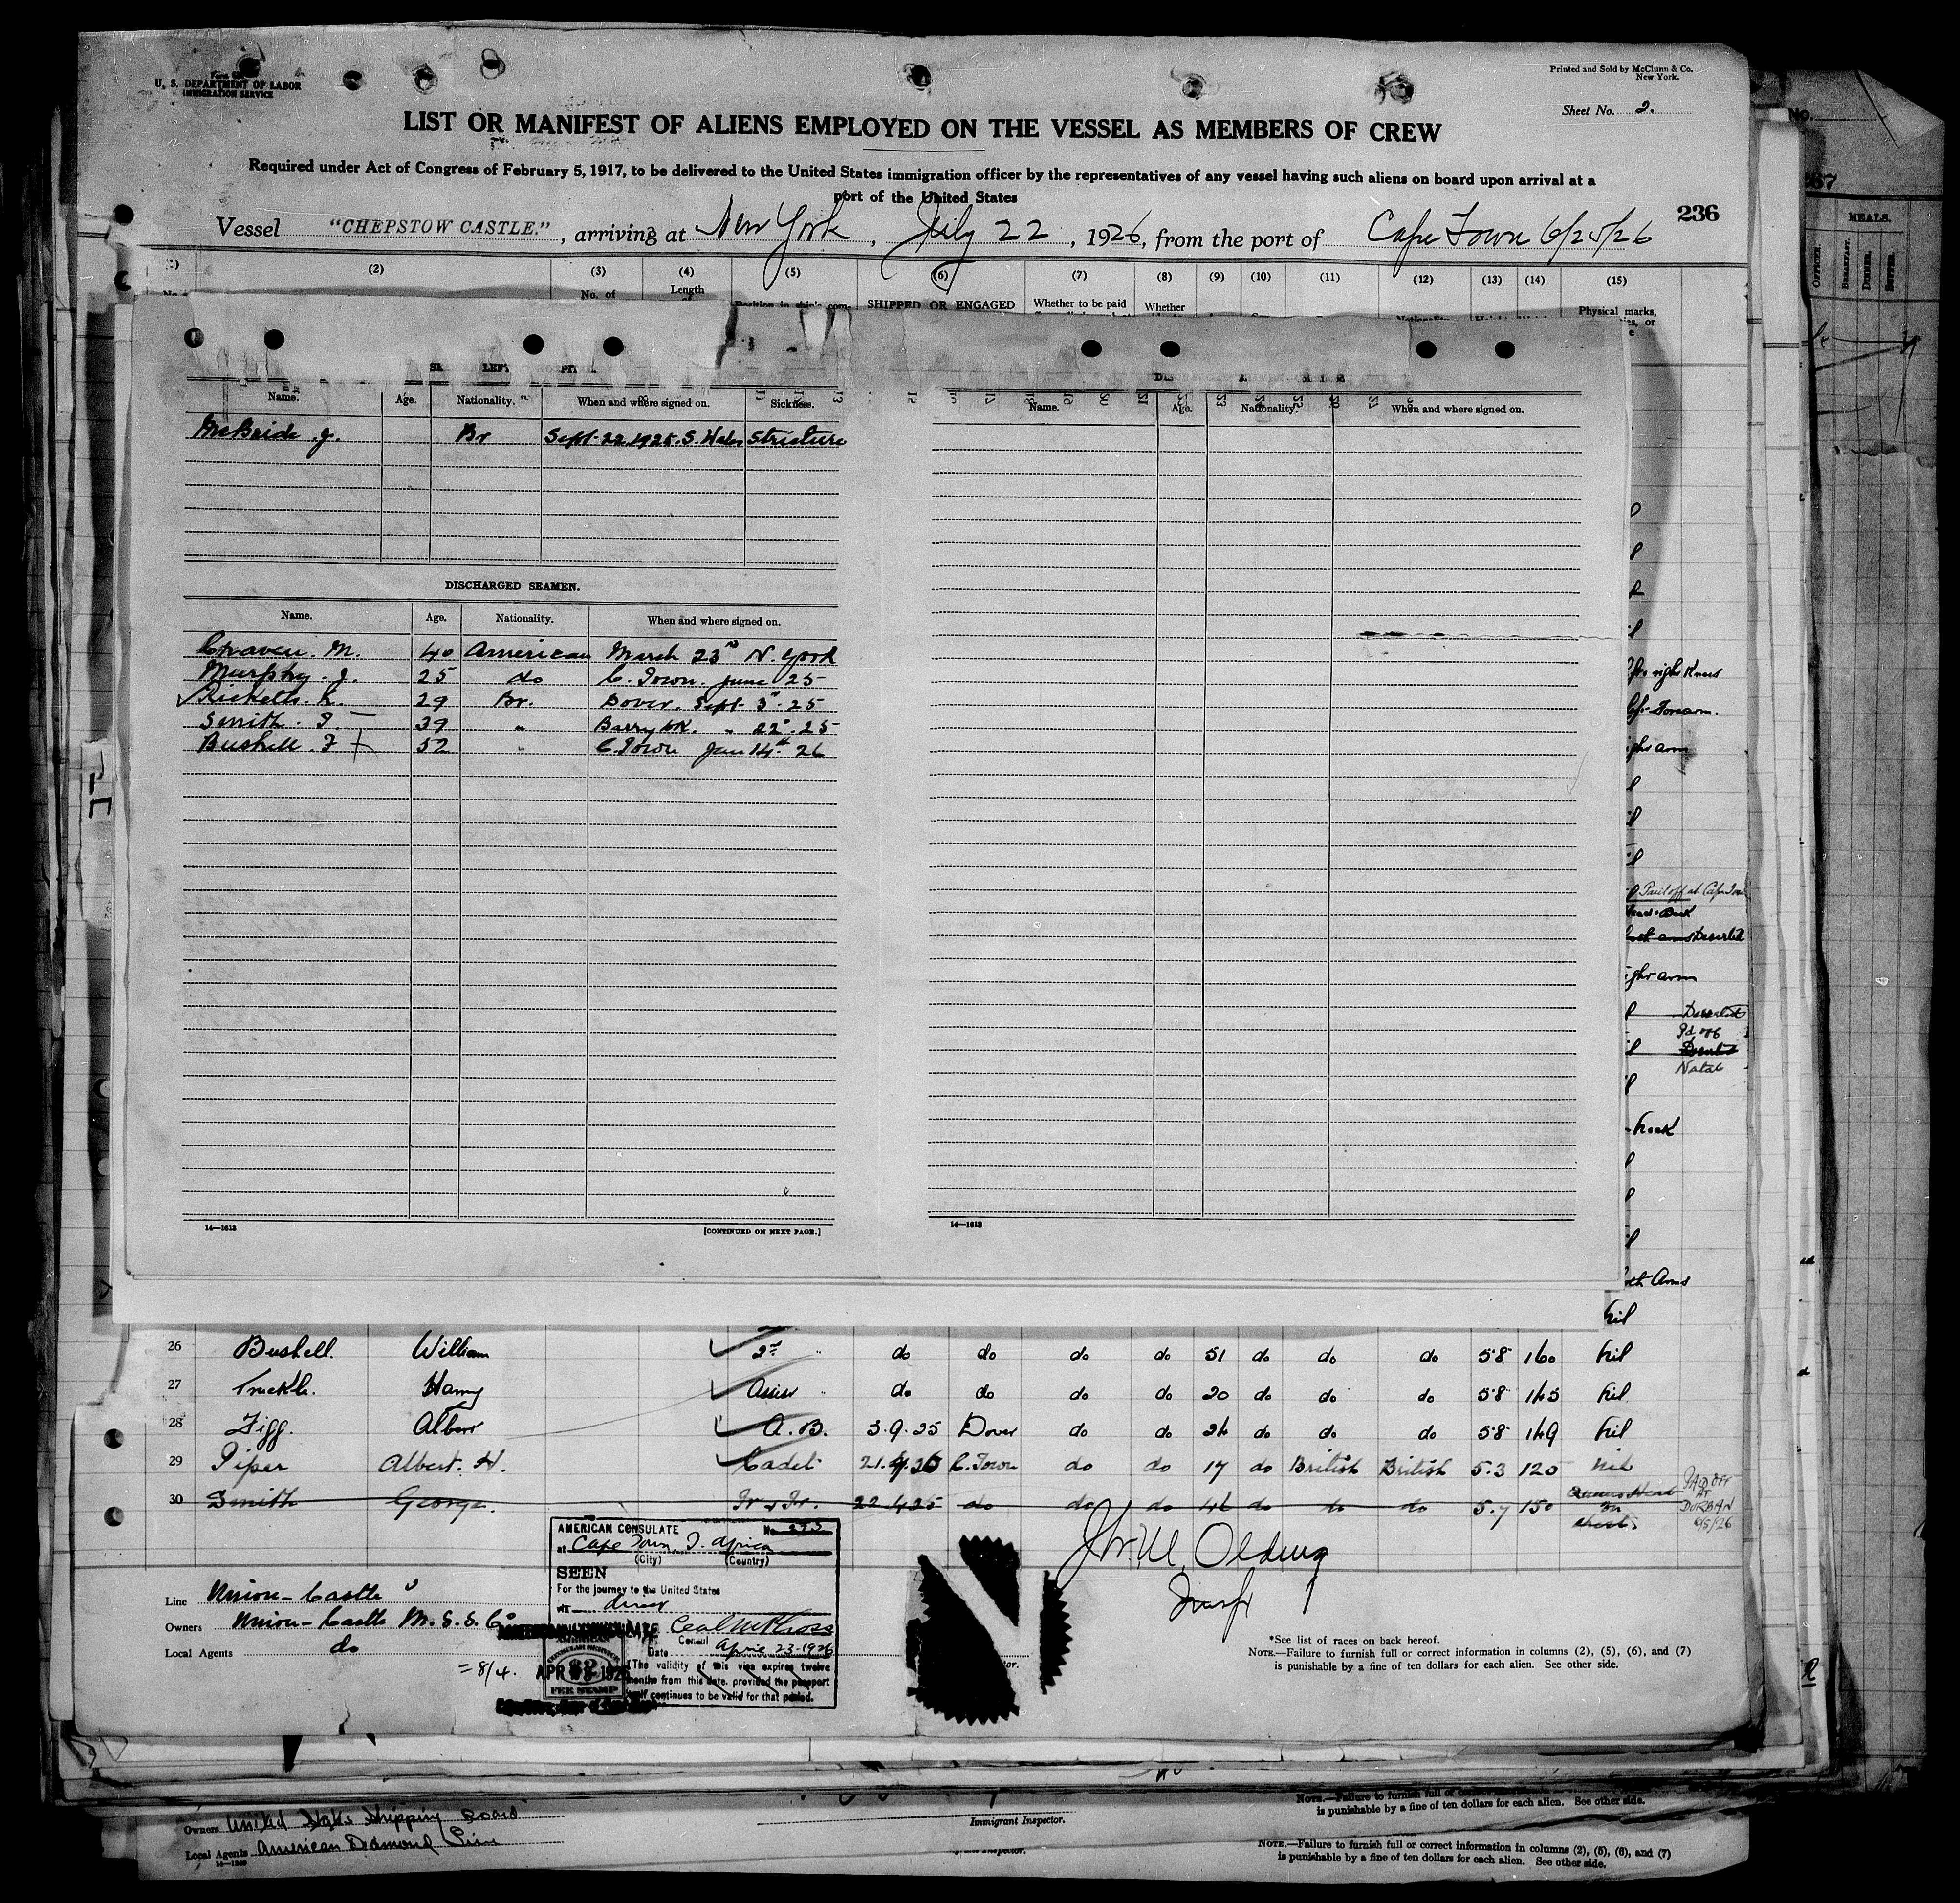 U. S. DEPARTMENT OF LABOR
IMMIGRATION SERVICE
Printed and Sold by McClunn & Co.
New York.
Sheet No. 2.
LIST OR MANIFEST OF ALIENS EMPLOYED ON THE VESSEL AS MEMBERS OF CREW
Required under Act of Congress of February 5, 1917, to be delivered to the United States immigration officer by the representatives of any vessel having such aliens on board upon arrival at a
port of the United States
236
Vessel "CHEPSTOW CASTLE.", arriving at New York, July 22, 1926, from the port of Cape Town 6/25/26
(2) (3) (4) (5) (6) (7) (8) (9) (10) (11) (12) (13) (14) (15)
No. of Length SHIPPED OR ENGAGED Whether to be paid Whether Physical marks,
Name. Age. Nationality. When and where signed on. Sickness.
McBride. J. Br Sept. 22.1925. S. Wales Stricture
Name. Age. Nationality. When and where signed on.
DISCHARGED SEAMEN.
Name. Age. Nationality. When and where signed on.
Craven. M. 40 American March 23rd N. York
Murphy. J. 25 do C. Town. June 25
Ricketts. 29 Br. Dover. Sept. 3. 25
Smith. 39 " Barry Dk. " 22. 25
Bushell. 52 " C. Town Jan 14th 26
14—1613 [CONTINUED ON NEXT PAGE.]
14—1613
right Knee
Forearm.
Paid off at Cape
Deserted
Deserted
Pd off
Deserted
Natal
Arms
nil
26 Bushell. William 2nd " do do do do 51 do do do 5.8 160 nil
27 Harry Assist " do do do do 20 do do do 5.8 145 nil
28 Figg. Albert A.B. 3.9.25 Dover do do 24 do do do 5.8 149 nil
29 Piper Albert. H. Cadet 21.4.26 C. Town do do 17 do British British 5.3 120 nil
30 Smith George. Tr. 22.4.25 do do do 46 do do do 5.7 150
chest.
PAID OFF
AT
DURBAN
AMERICAN CONSULATE No.
at Cape Town, S. Africa
(City) (Country)
SEEN
For the journey to the United States
via direct
Consul
Date April 23-1926
The validity of this visa expires twelve
months from this date, provided the passport
itself continues to be valid for that period.
AMERICAN
FEE STAMP
Line Union-Castle
Owners Union-Castle M. S. S. Co
Local Agents do
= 8/4.
*See list of races on back hereof.
NOTE.—Failure to furnish full or correct information in columns (2), (5), (6), and (7)
is punishable by a fine of ten dollars for each alien. See other side.
Owners United States Shipping Board
Local Agents American Diamond Line
Immigrant Inspector.
NOTE.—Failure to furnish full or correct
is punishable by a fine of ten dollars for each alien. See other side.
NOTE.—Failure to furnish full or correct information in columns (2), (5), (6), and (7)
is punishable by a fine of ten dollars for each alien. See other side.
No.
MEALS.
OFFICER.
BREAKFAST.
DINNER.
SUPPER.